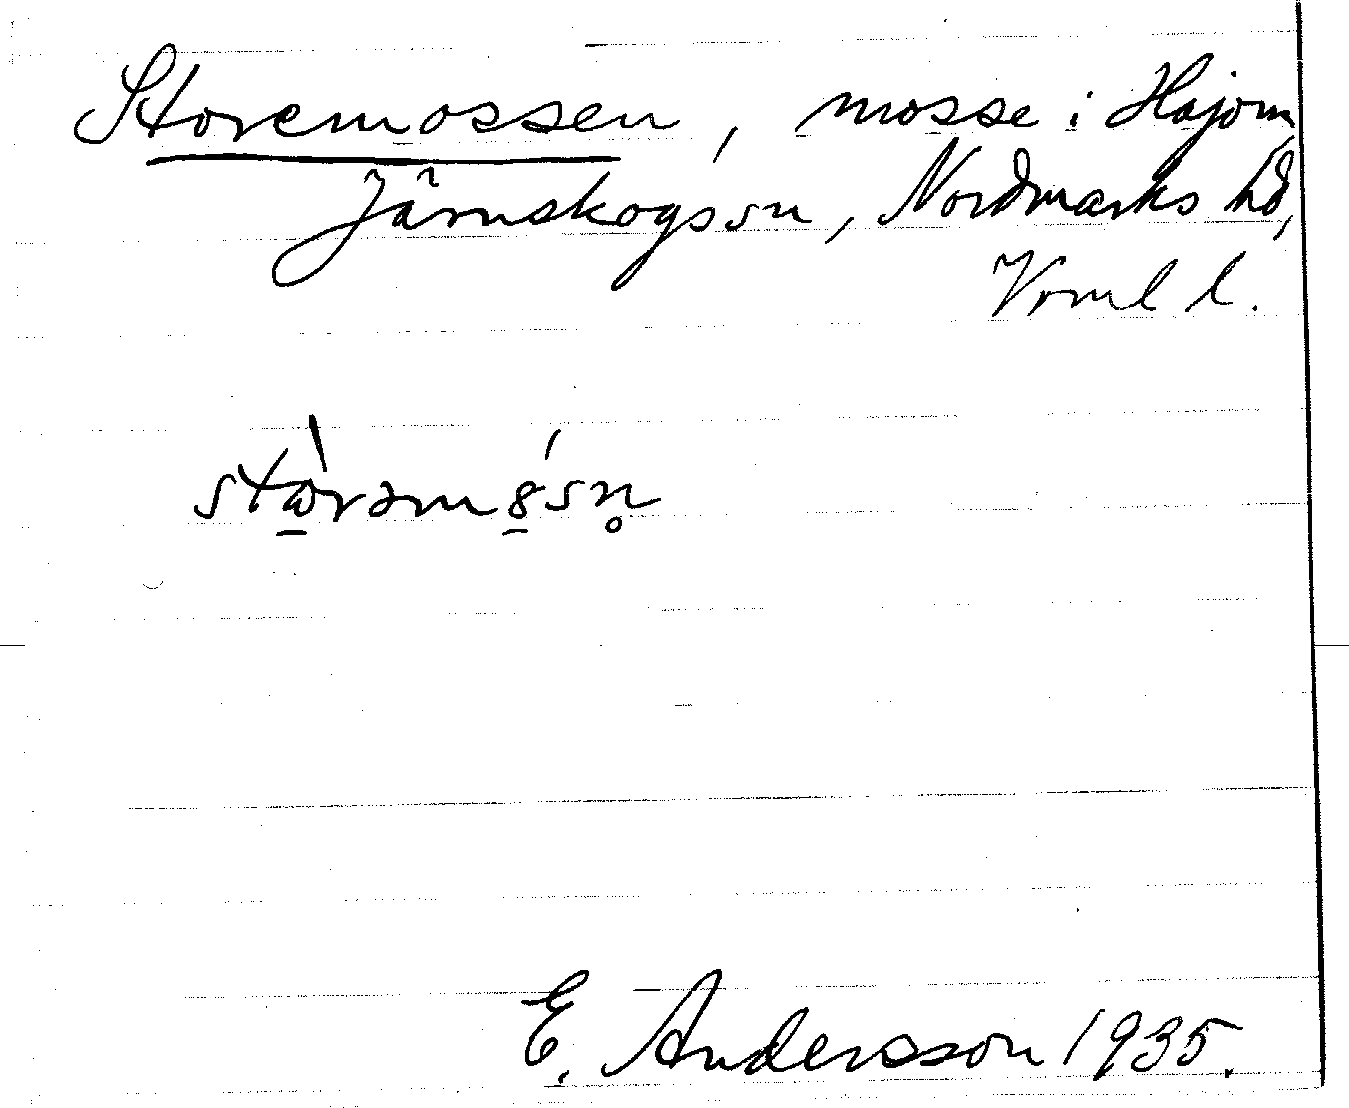 Storemossen, mosse i Hajom,
Järnskogs sn, Nordmarks hd,
Vrml l.
stὼ̲rəm8̲́sn̥
E. Andersson 1935.